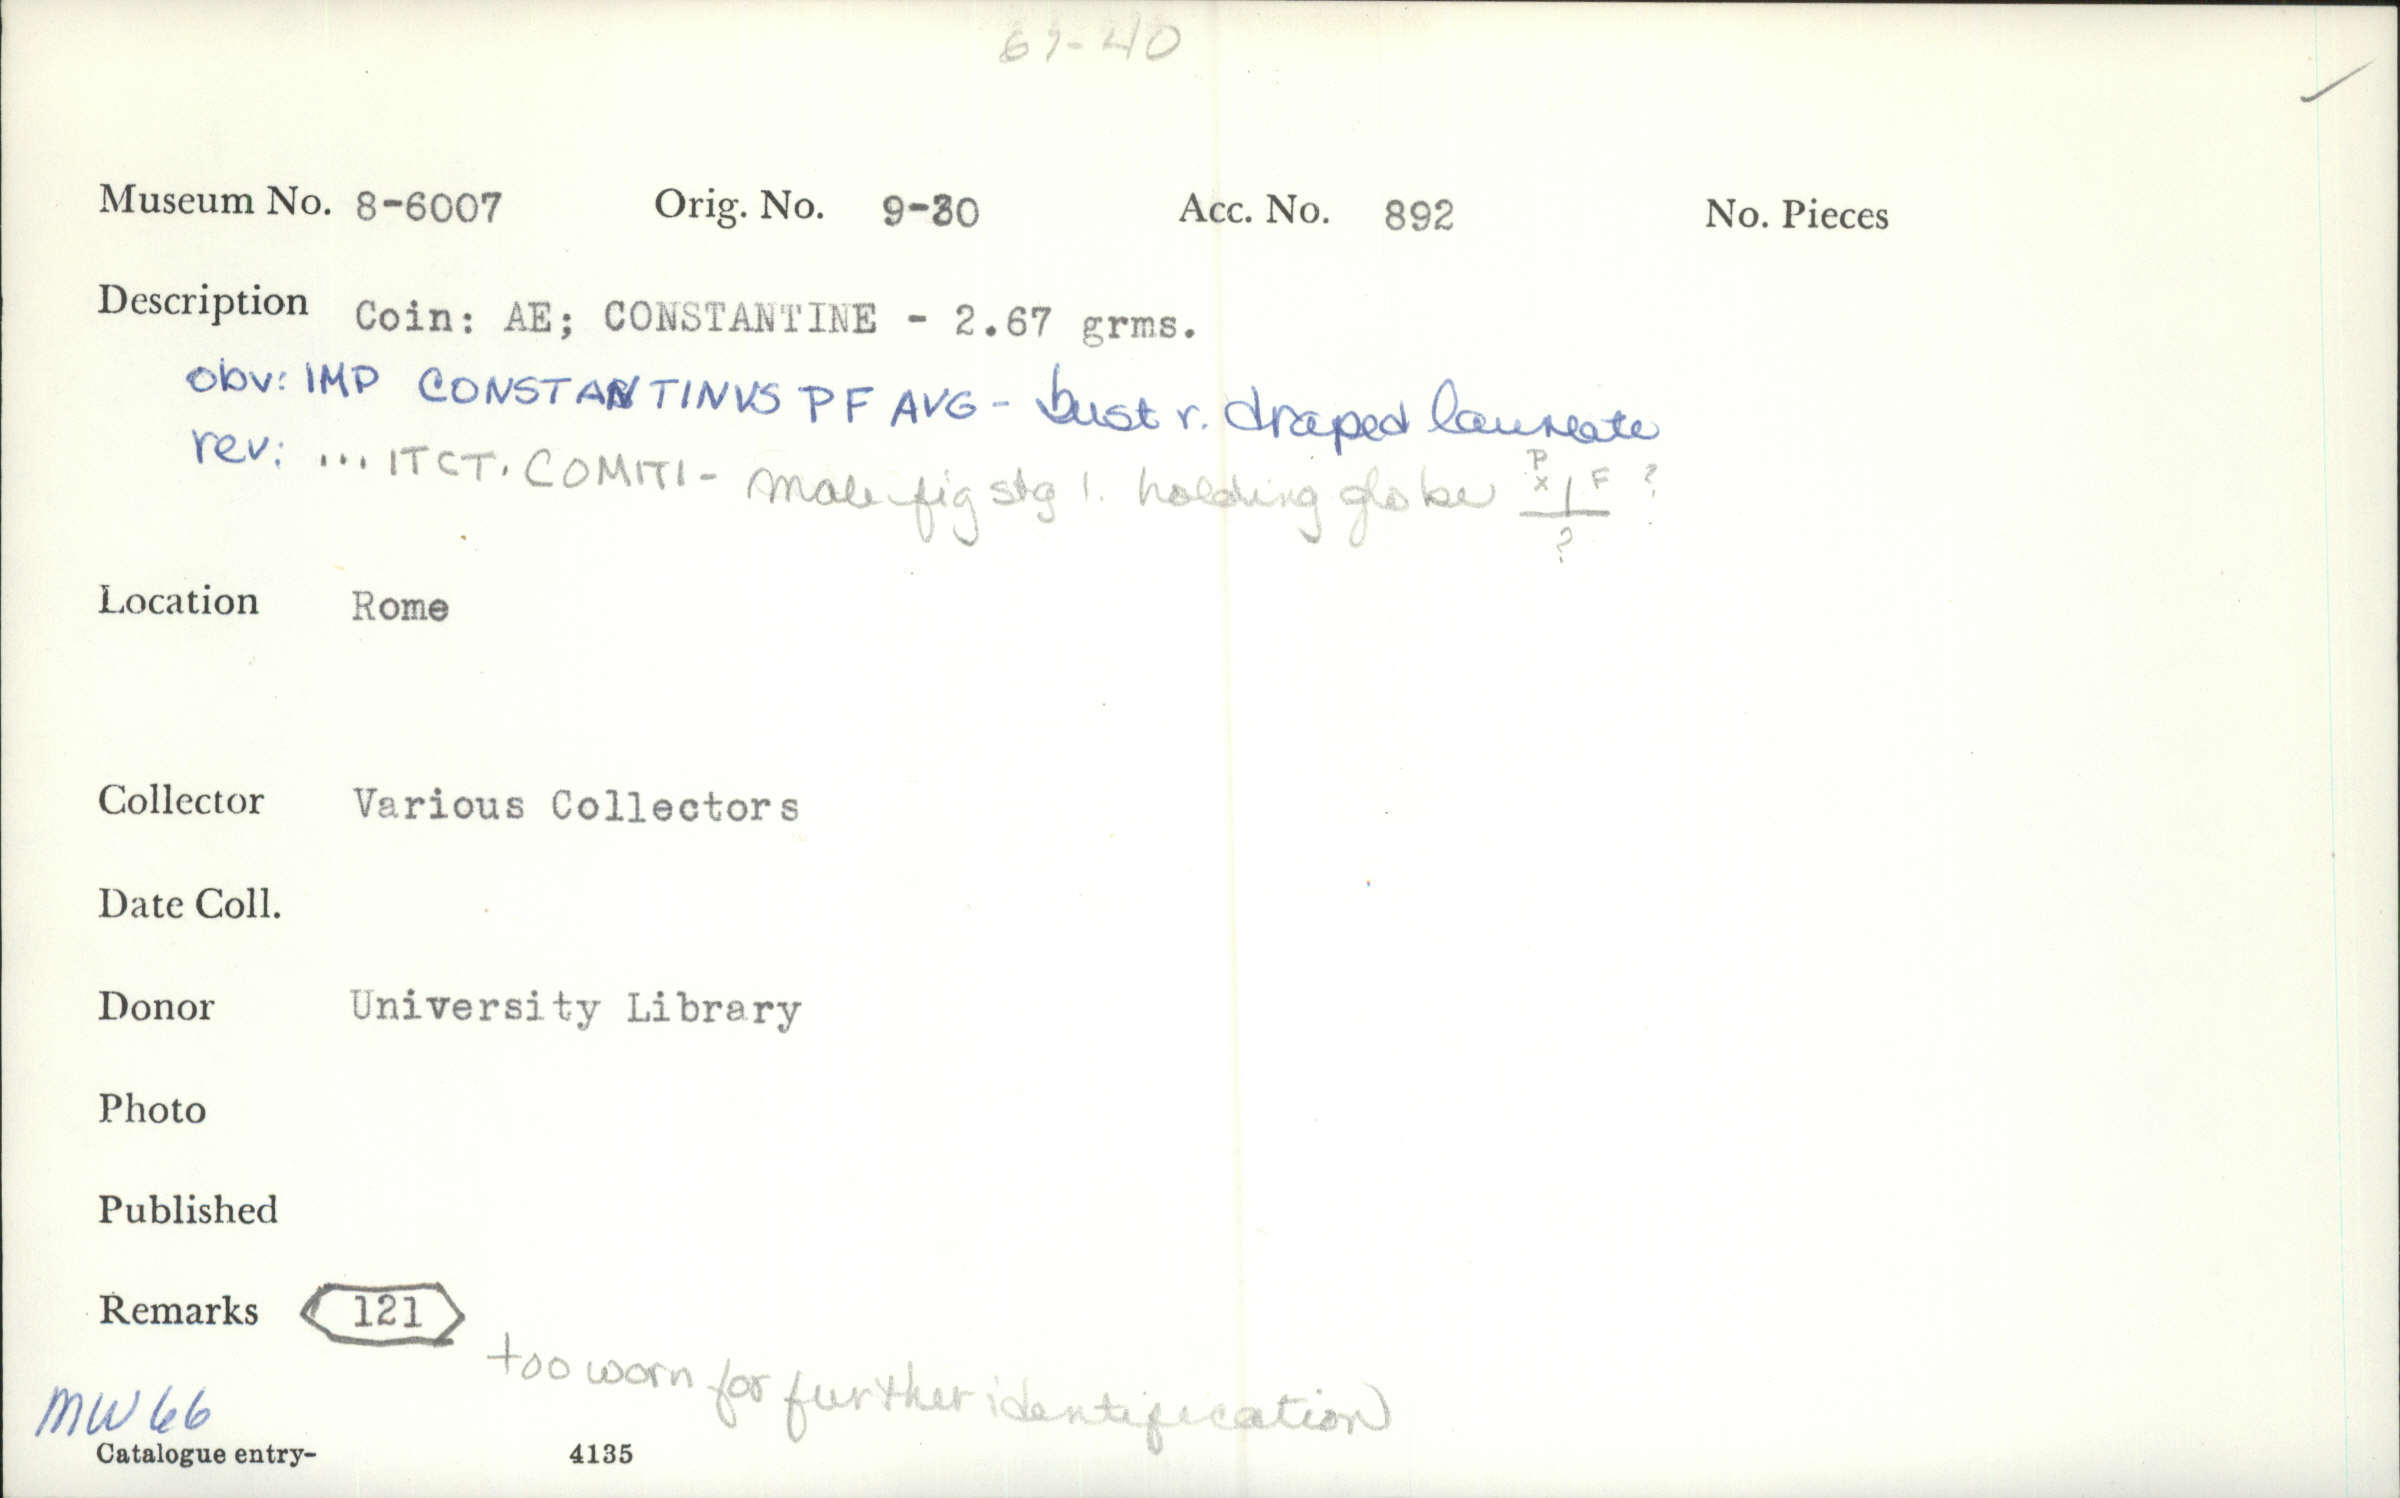 67-40
Museum No. 8-6007 Orig. No. 9-30 Acc. No. 892 No. Pieces
Description Coin: AE; CONSTANTINE - 2.67 grms.
obv: IMP CONSTANTINVS PF AVG - bust r. draped laureate
rev: ...ITCT. COMITI - male fig stg l. holding globe P x | F ?
?
Location Rome
Collector Various Collectors
Date Coll.
Donor University Library
Photo
Published
Remarks 121
too worn for further identification
MW 66
Catalogue entry- 4135